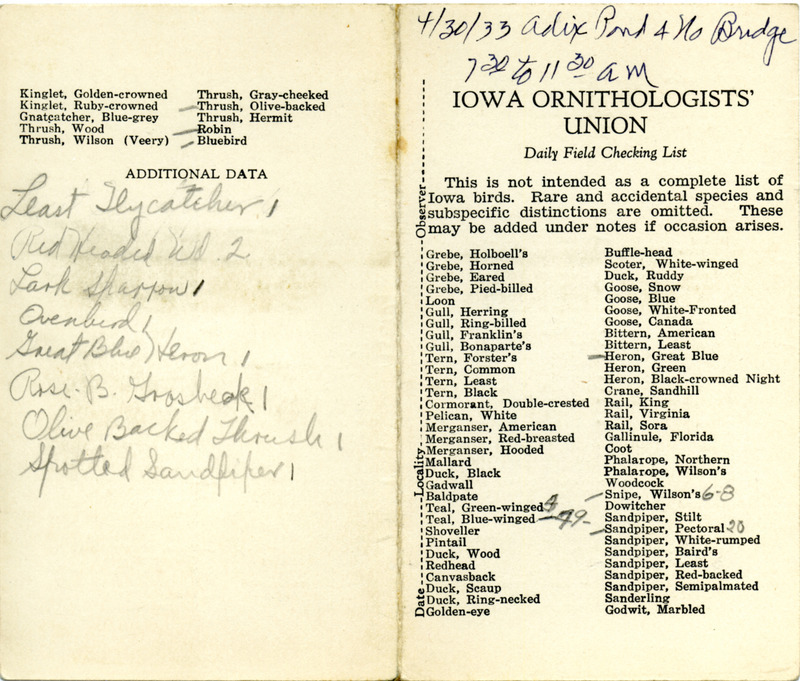 Kinglet, Golden-crowned
Kinglet, Ruby-crowned
Gnatcatcher, Blue-grey
Thrush, Wood
Thrush, Wilson (Veery)
Thrush, Gray-cheeked
Thrush, Olive-backed
Thrush, Hermit
Robin
Bluebird
ADDITIONAL DATA
Least Flycatcher 1
Red Headed Wd. 2
Lark Sparrow 1
Ovenbird 1
Great Blue Heron 1
Rose-B. Grosbeak 1
Olive Backed Thrush 1
Spotted Sandpiper 1
4/30/33 Adix Pond & No Bridge
7 30 to 11 30 am
IOWA ORNITHOLOGISTS'
UNION
Daily Field Checking List
This is not intended as a complete list of
Iowa birds. Rare and accidental species and
subspecific distinctions are omitted. These
may be added under notes if occasion arises.
Observer
Locality
Date
Grebe, Holboell's
Grebe, Horned
Grebe, Eared
Grebe, Pied-billed
Loon
Gull, Herring
Gull, Ring-billed
Gull, Franklin's
Gull, Bonaparte's
Tern, Forster's
Tern, Common
Tern, Least
Tern, Black
Cormorant, Double-crested
Pelican, White
Merganser, American
Merganser, Red-breasted
Merganser, Hooded
Mallard
Duck, Black
Gadwall
Baldpate
Teal, Green-winged 4
Teal, Blue-winged 49-
Shoveller
Pintail
Duck, Wood
Redhead
Canvasback
Duck, Scaup
Duck, Ring-necked
Golden-eye
Buffle-head
Scoter, White-winged
Duck, Ruddy
Goose, Snow
Goose, Blue
Goose, White-Fronted
Goose, Canada
Bittern, American
Bittern, Least
Heron, Great Blue
Heron, Green
Heron, Black-crowned Night
Crane, Sandhill
Rail, King
Rail, Virginia
Rail, Sora
Gallinule, Florida
Coot
Phalarope, Northern
Phalarope, Wilson's
Woodcock
Snipe, Wilson's 6-8
Dowitcher
Sandpiper, Stilt
Sandpiper, Pectoral 20
Sandpiper, White-rumped
Sandpiper, Baird's
Sandpiper, Least
Sandpiper, Red-backed
Sandpiper, Semipalmated
Sanderling
Godwit, Marbled